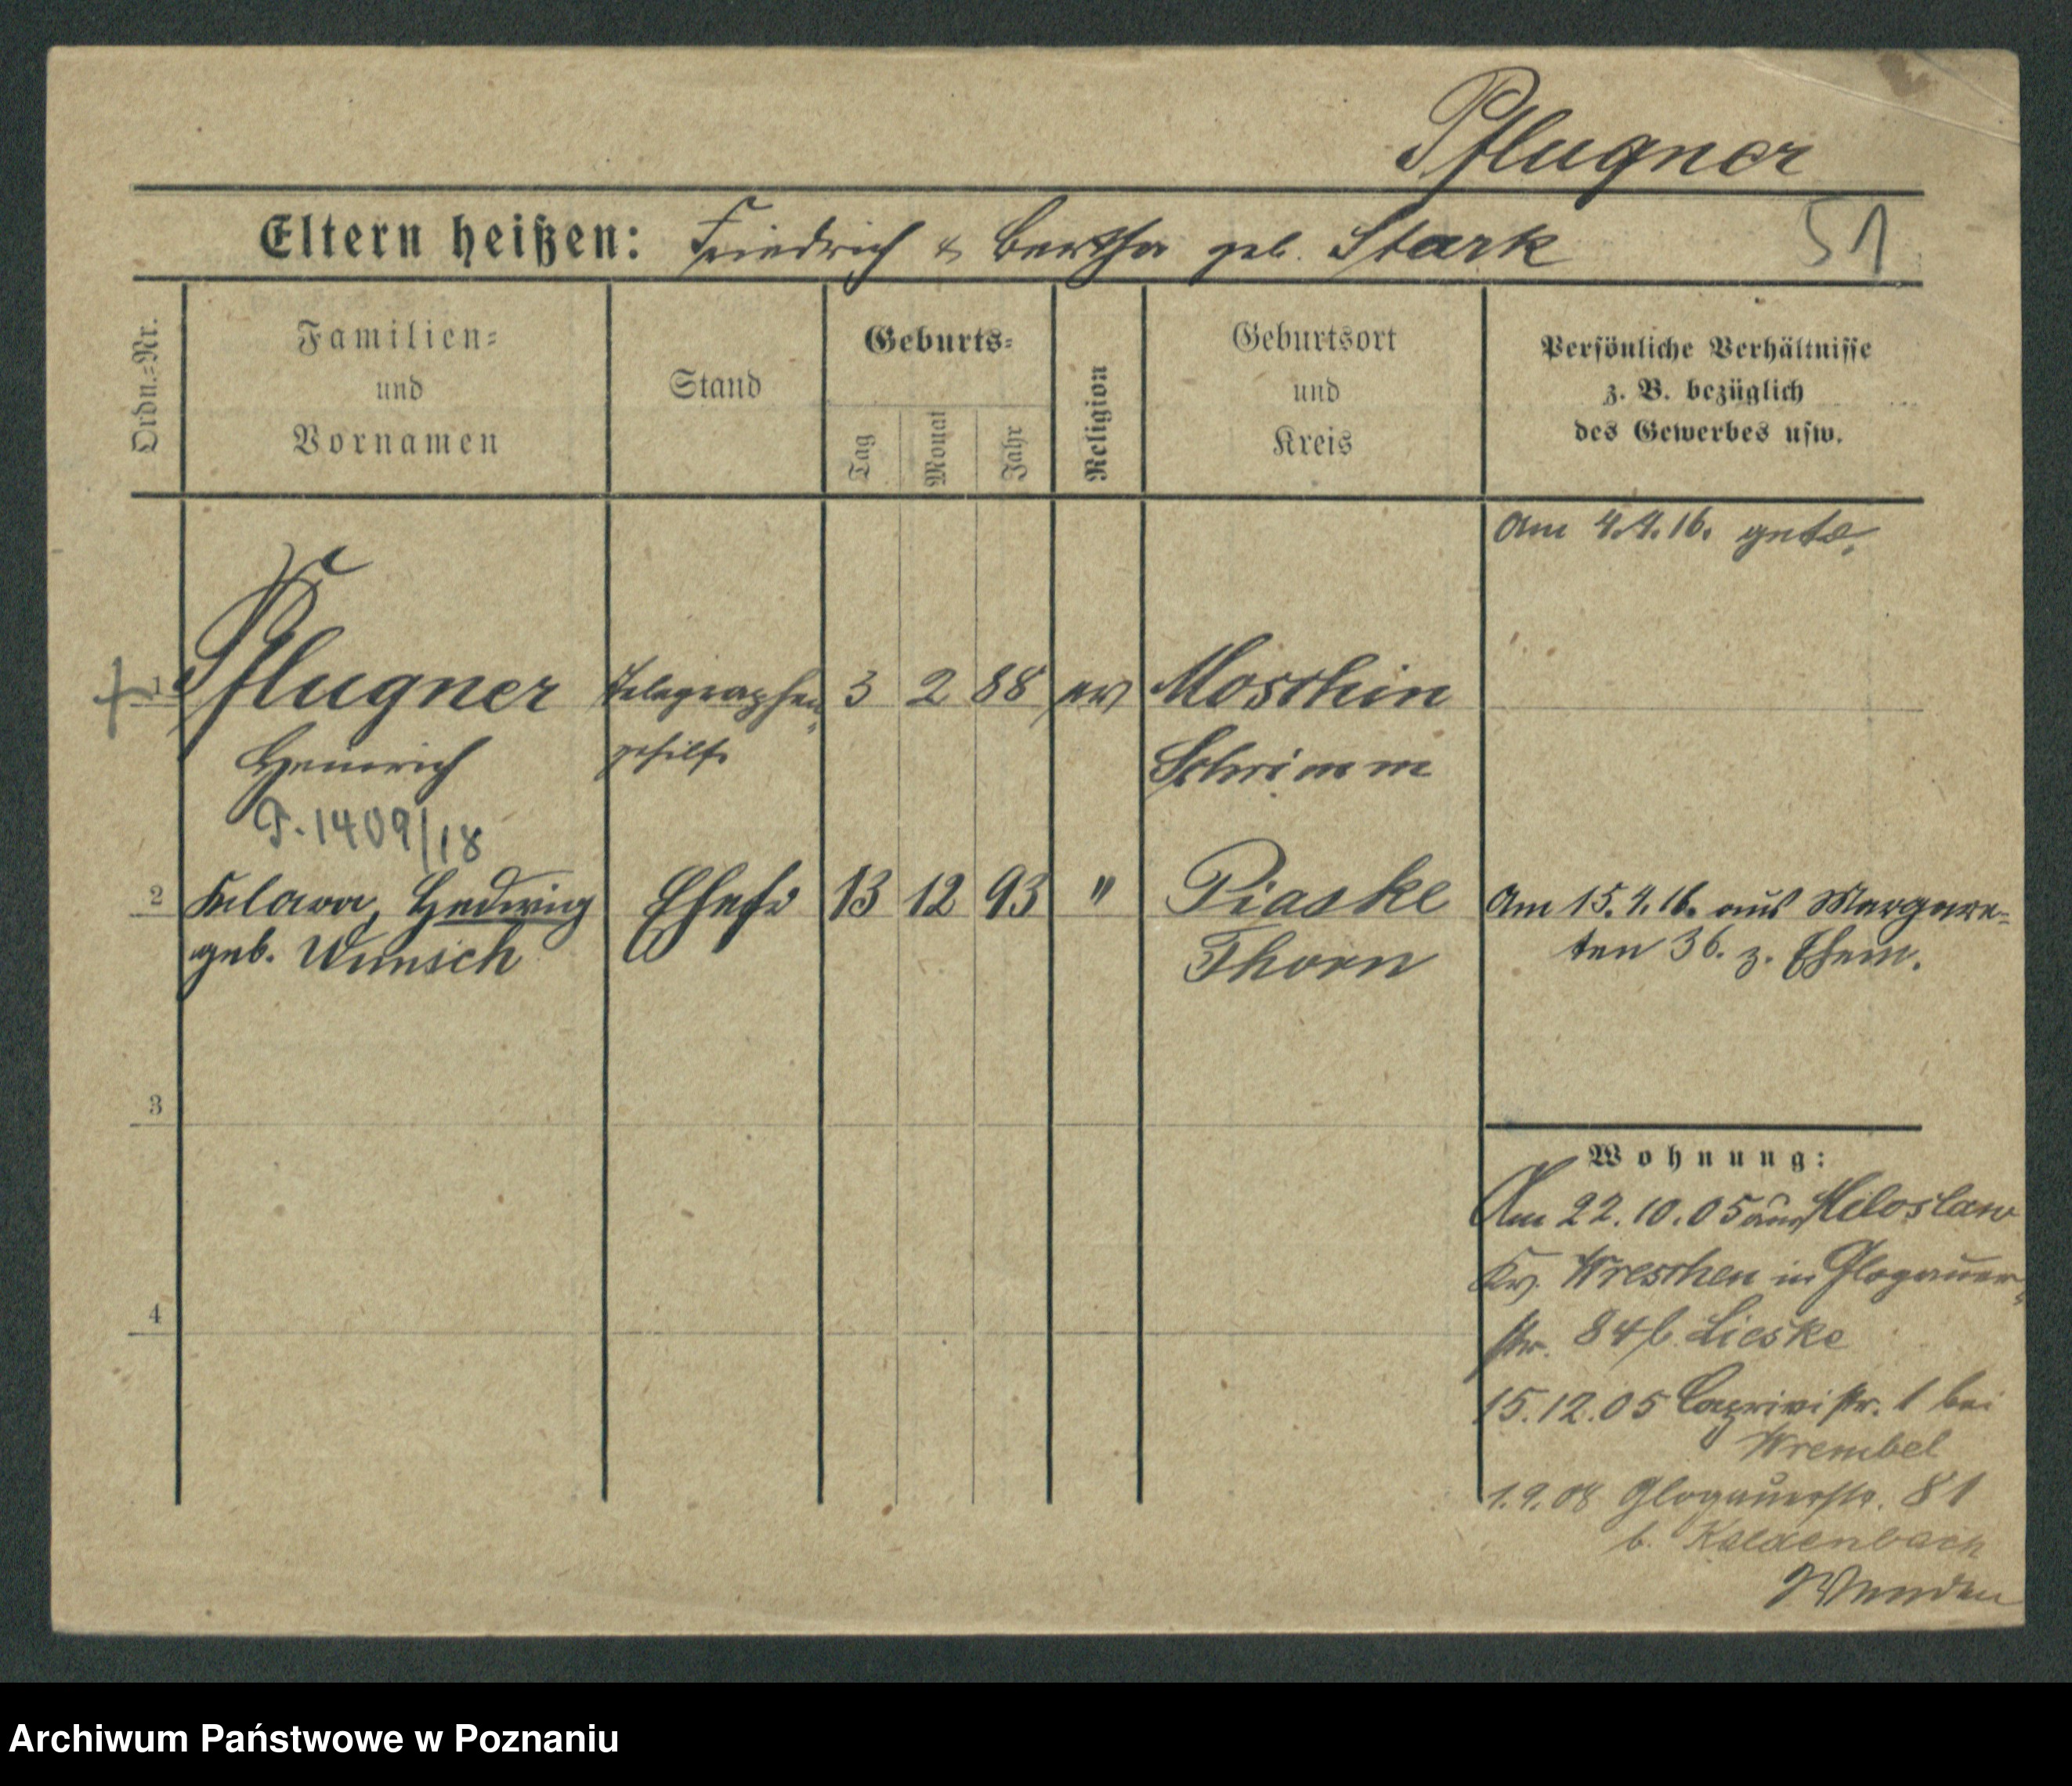 Pflugner
Eltern heißen: Friedrich & Bertha geb. Stark 51
Ordn.-Nr.
Familien-
und
Vornamen
Stand
Geburts-
Tag
Monat
Jahr
Religion
Geburtsort
und
Kreis
Persönliche Verhältnisse
z. B. bezüglich
des Gewerbes usw.
Am 4.4.16. getr.
1 Pflugner Telegraphen- 3 2 88 ev Moschin
Heinrich gehilfe Schrimm
P. 1409/18
2 Klara, Hedwig Ehefr 13 12 93 " Piaske Am 15.4.16. aus Margare-
geb. Wunsch Thorn ten 36. z. Ehem.
3
Wohnung:
Am 22.10.05 aus Miloslaw
Kr. Wreschen in Glogauer-
4
str. 84 b. Lieske
15.12.05 Caprivistr. 1 bei
Wrembel
1.9.08 Glogauerstr. 81
b. Kaldenbach
Wenden
Archiwum Państwowe w Poznaniu